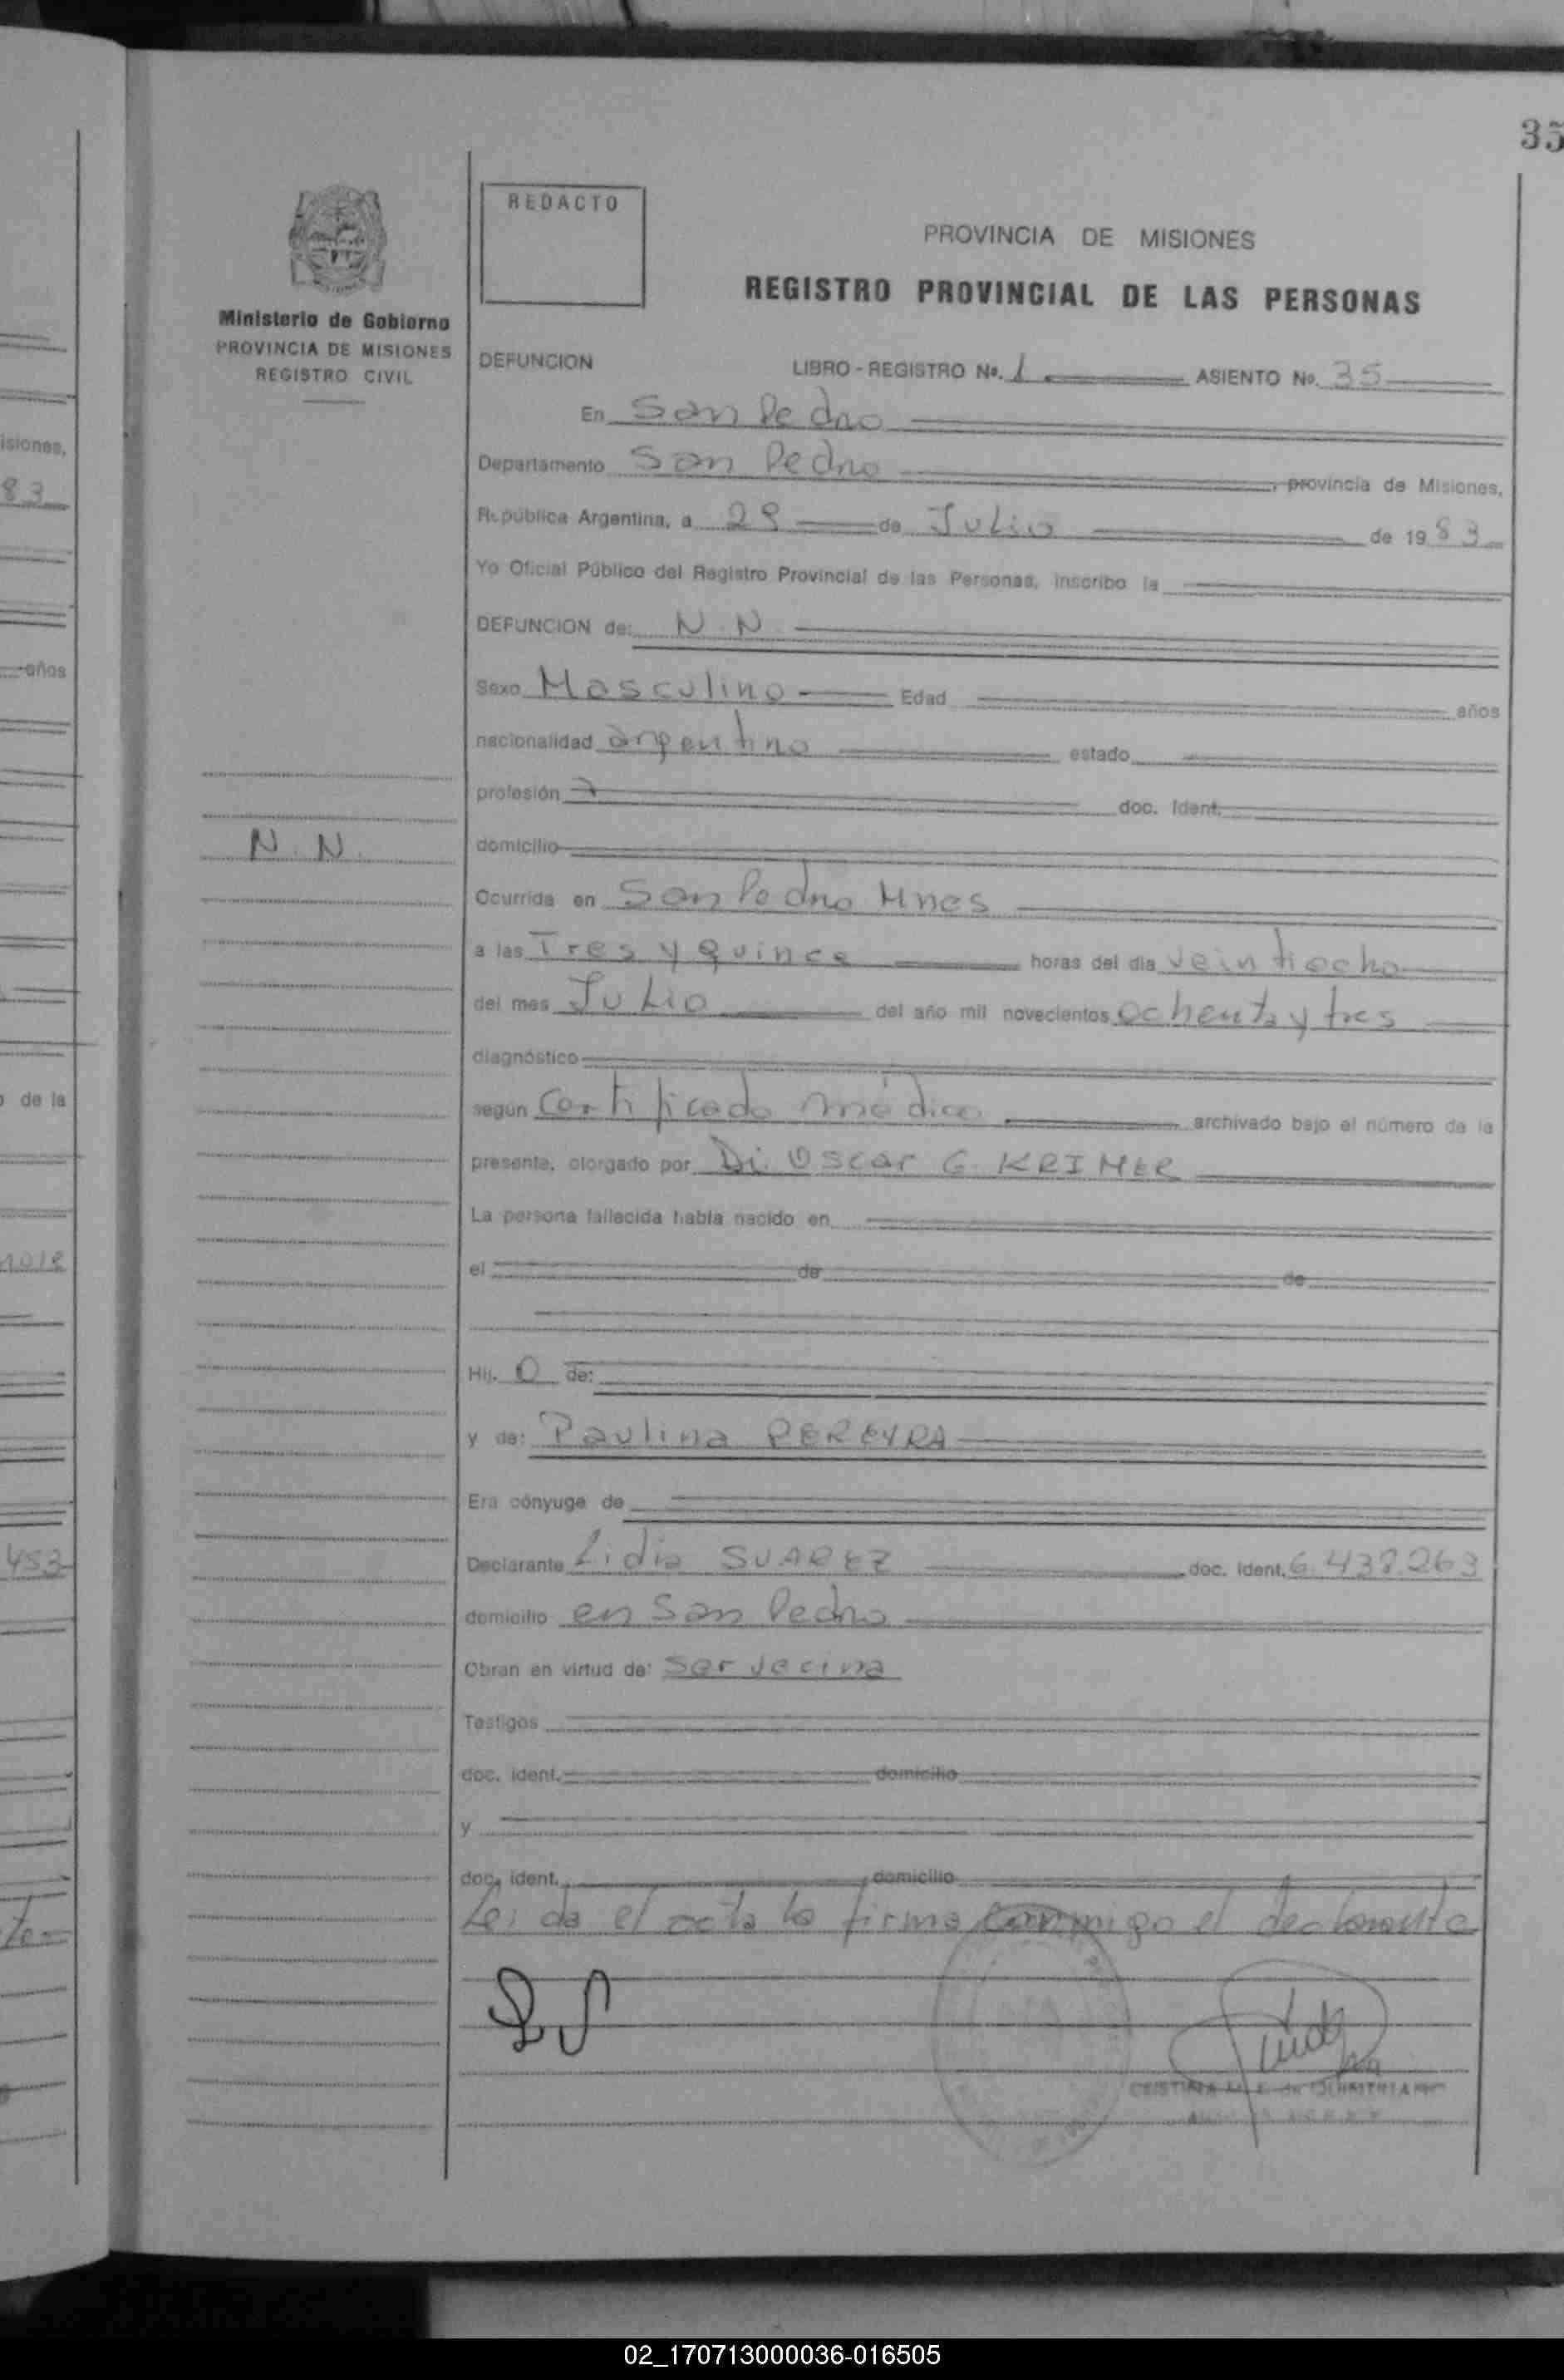 35
REDACTO
PROVINCIA DE MISIONES
REGISTRO PROVINCIAL DE LAS PERSONAS
Ministerio de Gobierno
PROVINCIA DE MISIONES
REGISTRO CIVIL
DEFUNCION LIBRO - REGISTRO No. 1 ASIENTO No. 35
En San Pedro
Departamento San Pedro, provincia de Misiones,
República Argentina, a 29 de Julio de 1983
Yo Oficial Público del Registro Provincial de las Personas, inscribo la
DEFUNCION de: N.N.
Sexo Masculino Edad años
nacionalidad argentino estado
profesión doc. Ident.
N.N.
domicilio
Ocurrida en San Pedro Mnes
a las Tres y quince horas del día veintiocho
del mes Julio del año mil novecientos ochenta y tres
diagnóstico
según Certificado médico archivado bajo el número de la
presente, otorgado por Di. Oscar G. KRIMER
La persona fallecida había nacido en
el de de
Hij. o de:
y de: Paulina PEREYRA
Era cónyuge de
Declarante Lidia SUAREZ doc. Ident. 6.438.263
domicilio en San Pedro
Obran en virtud de: Ser vecina
Testigos
doc. Ident. domicilio
y
doc. Ident. domicilio
Leida el acta la firma conmigo el declarante
LS
isiones,
83
años
de la
453
02_170713000036-016505